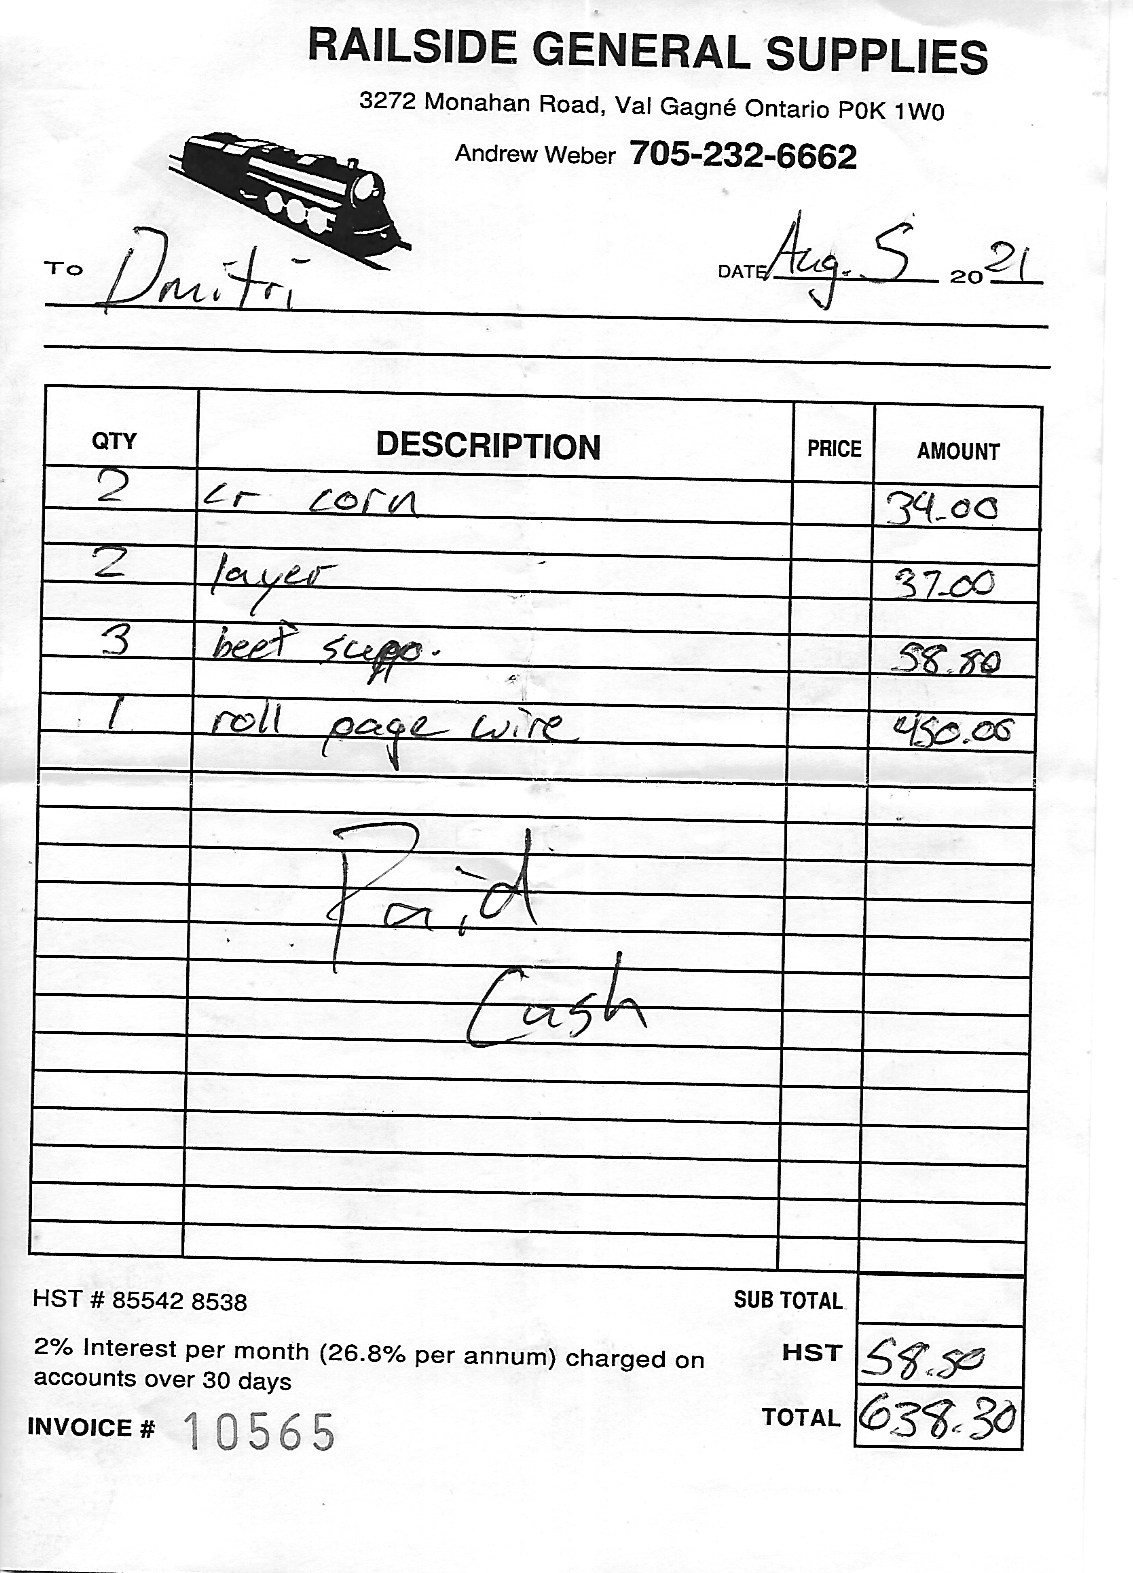 RAILSIDE GENERAL SUPPLIES
3272 Monahan Road, Val Gagné Ontario P0K 1W0
Andrew Weber 705-232-6662
TO Dmitri
DATE Aug. 5 2021
QTY DESCRIPTION PRICE AMOUNT
2 cr corn 34.00
2 layer 37.00
3 beef supp. 58.80
1 roll page wire 450.00
Paid
Cash
HST # 85542 8538
SUB TOTAL
2% Interest per month (26.8% per annum) charged on
accounts over 30 days
HST 58.50
INVOICE # 10565
TOTAL 638.30